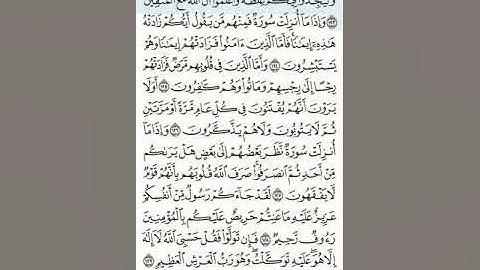 وَلْيَجِدُوا۟ فِيكُمْ غِلْظَةً وَٱعْلَمُوٓا۟ أَنَّ ٱللَّهَ مَعَ ٱلْمُتَّقِينَ
١٢٣ وَإِذَا مَآ أُنزِلَتْ سُورَةٌ فَمِنْهُم مَّن يَقُولُ أَيُّكُمْ زَادَتْهُ
هَٰذِهِۦٓ إِيمَٰنًا فَأَمَّا ٱلَّذِينَ ءَامَنُوا۟ فَزَادَتْهُمْ إِيمَٰنًا وَهُمْ
يَسْتَبْشِرُونَ ١٢٤ وَأَمَّا ٱلَّذِينَ فِى قُلُوبِهِم مَّرَضٌ فَزَادَتْهُمْ
رِجْسًا إِلَىٰ رِجْسِهِمْ وَمَاتُوا۟ وَهُمْ كَٰفِرُونَ ١٢٥ أَوَلَا
يَرَوْنَ أَنَّهُمْ يُفْتَنُونَ فِى كُلِّ عَامٍ مَّرَّةً أَوْ مَرَّتَيْنِ
ثُمَّ لَا يَتُوبُونَ وَلَا هُمْ يَذَّكَّرُونَ ١٢٦ وَإِذَا مَآ
أُنزِلَتْ سُورَةٌ نَّظَرَ بَعْضُهُمْ إِلَىٰ بَعْضٍ هَلْ يَرَىٰكُم
مِّنْ أَحَدٍ ثُمَّ ٱنصَرَفُوا۟ صَرَفَ ٱللَّهُ قُلُوبَهُم بِأَنَّهُمْ قَوْمٌ
لَّا يَفْقَهُونَ ١٢٧ لَقَدْ جَآءَكُمْ رَسُولٌ مِّنْ أَنفُسِكُمْ
عَزِيزٌ عَلَيْهِ مَا عَنِتُّمْ حَرِيصٌ عَلَيْكُم بِٱلْمُؤْمِنِينَ
رَءُوفٌ رَّحِيمٌ ١٢٨ فَإِن تَوَلَّوْا۟ فَقُلْ حَسْبِىَ ٱللَّهُ لَآ إِلَٰهَ
إِلَّا هُوَ عَلَيْهِ تَوَكَّلْتُ وَهُوَ رَبُّ ٱلْعَرْشِ ٱلْعَظِيمِ ١٢٩